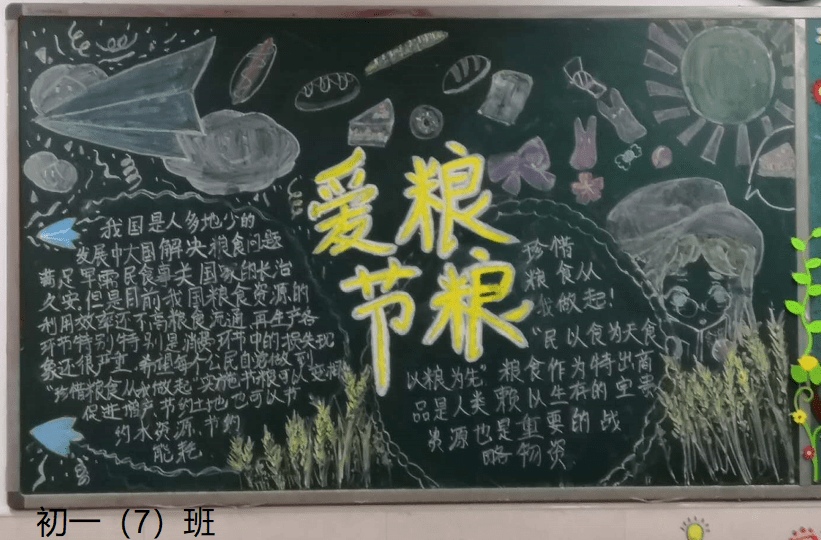 爱粮
节粮
我国是人多地少的
发展中大国解决粮食问题
满足军需民食事关国家的长治
久安但是目前我国粮食资源的
利用效率还不高粮食流通再生产各
环节特别特别是消费环节中的损失现
象还很严重希望每个公民自觉做到
"珍惜粮食从我做起"实施节粮可以
促进增产节约土地也可以节
约水资源节约
能耗
珍惜
粮食从
我做起！
"民以食为天食
以粮为先"粮食作为特出商
品是人类赖以生存的宝贵
资源也是重要的战
略物资
初一（7）班